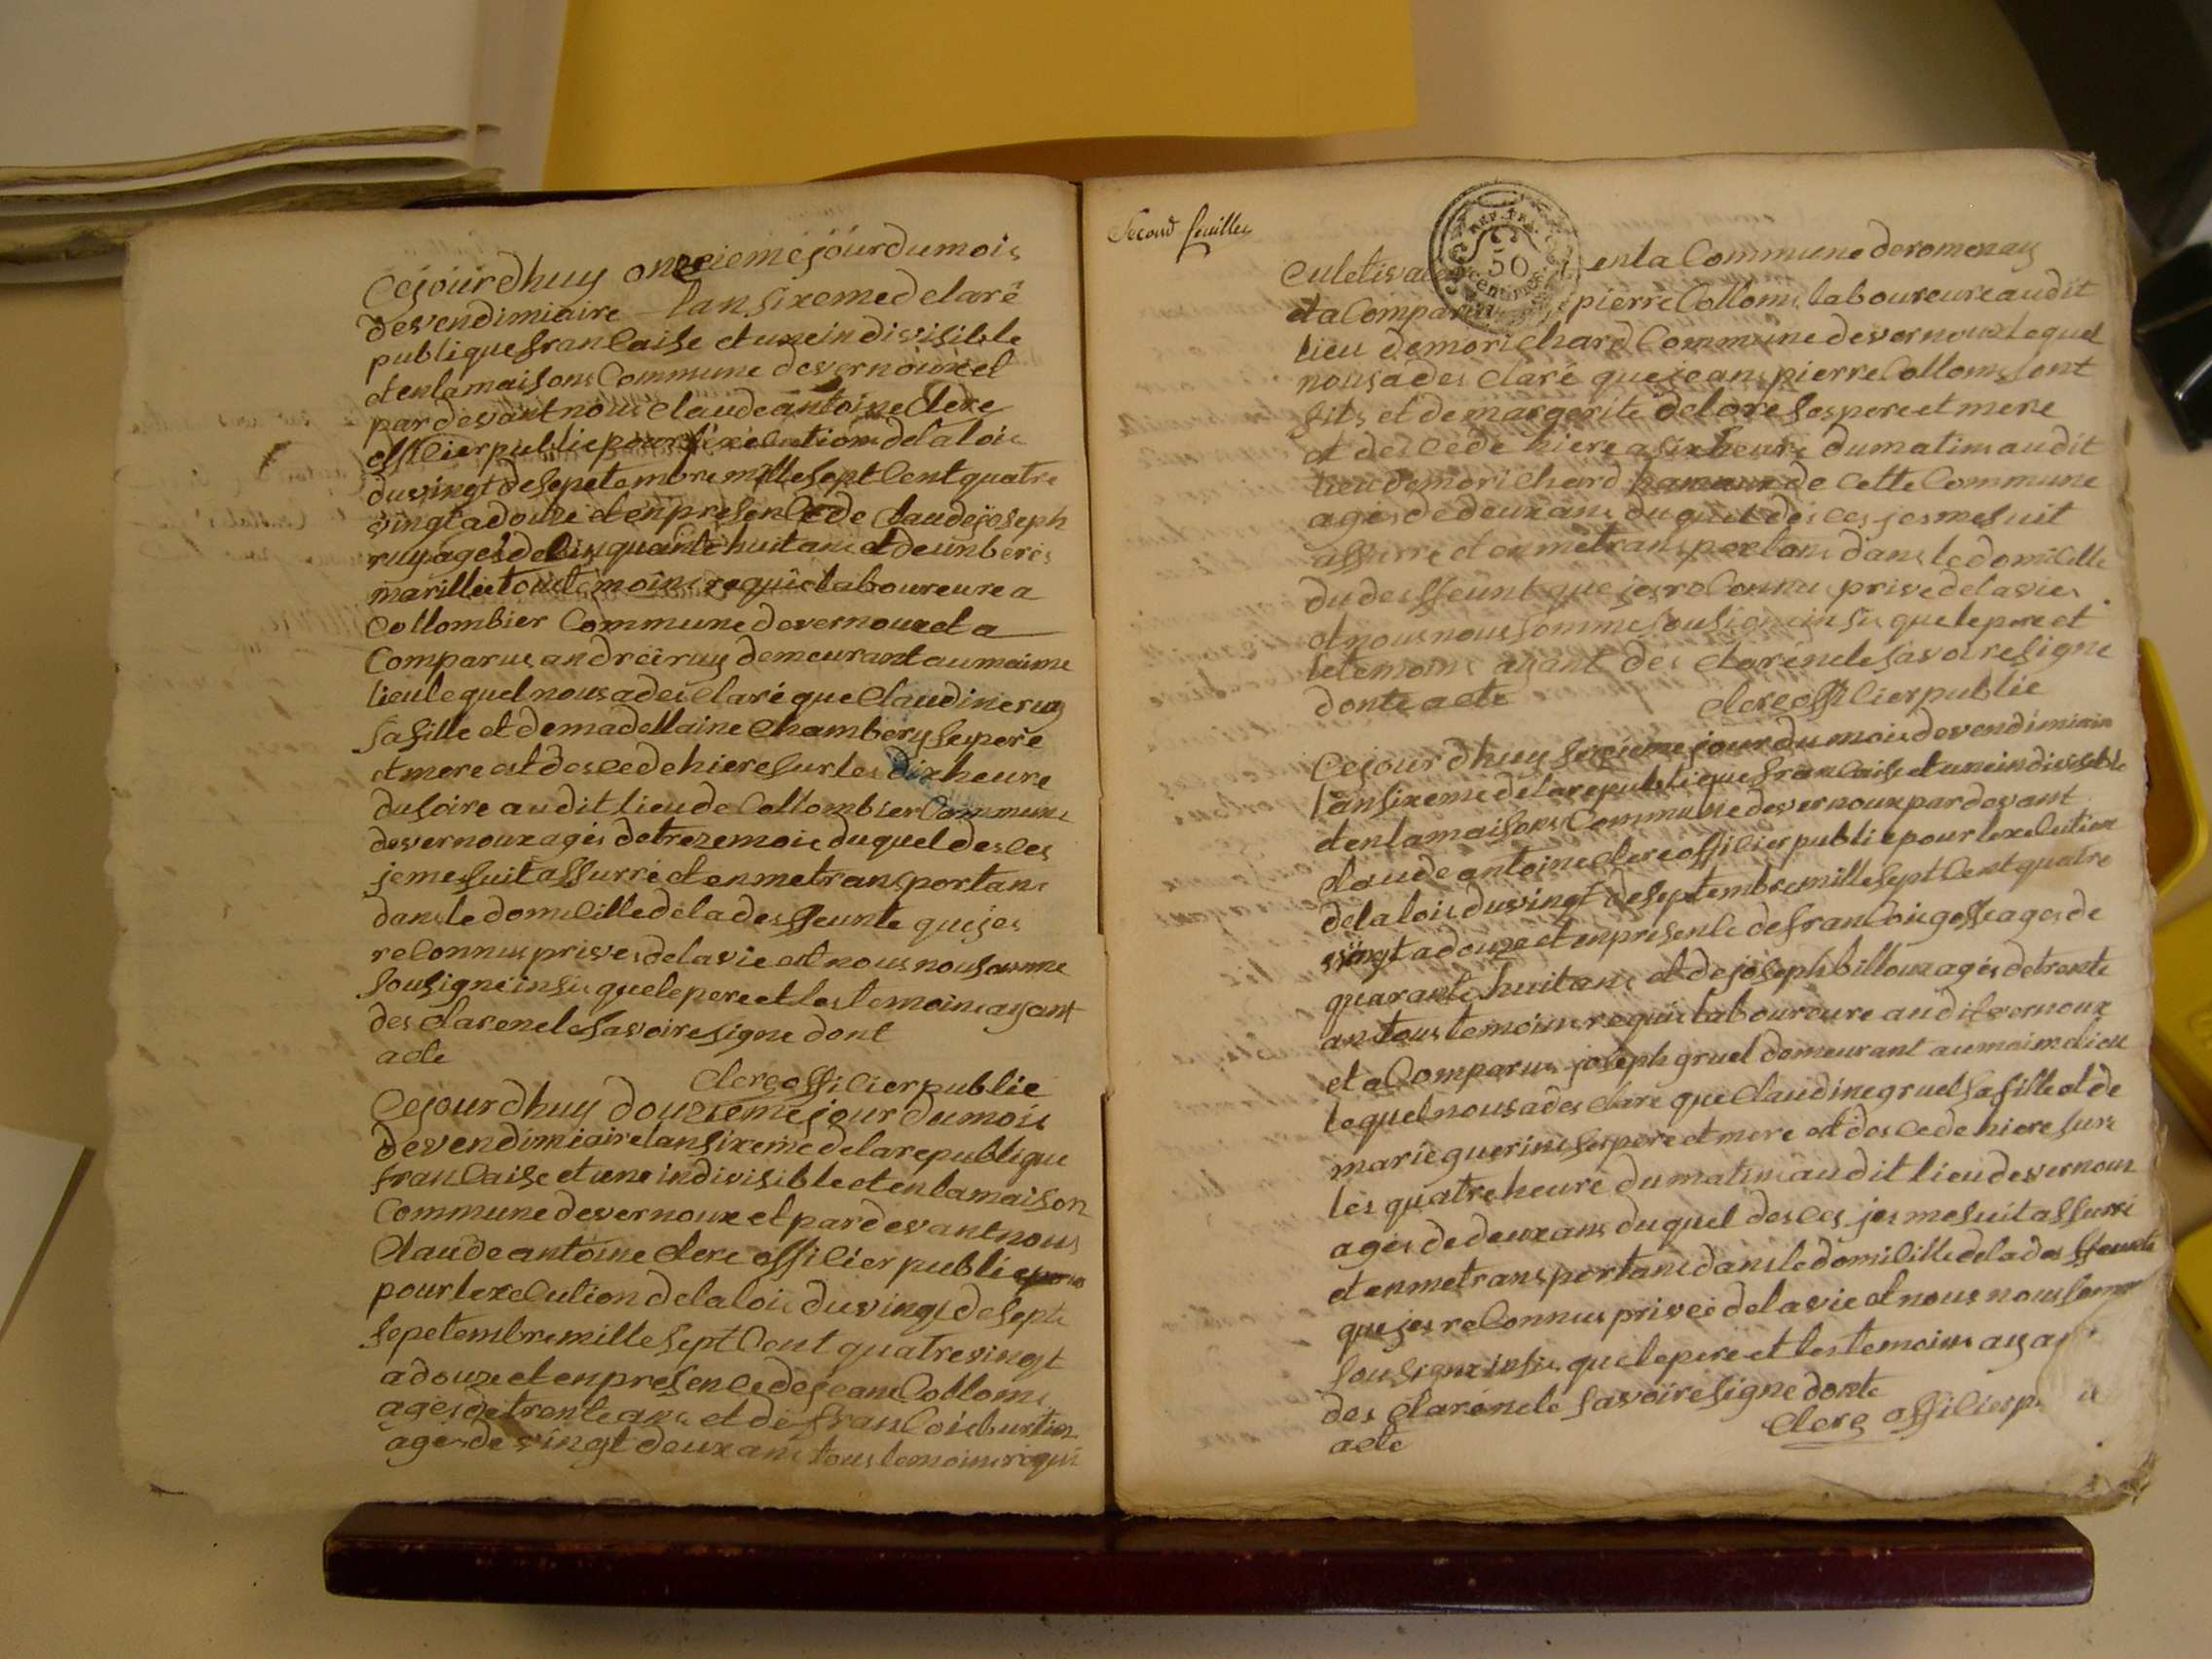 Cejourdhuy onzieme jour du mois
de vendimiaire lan sixeme de la ré
publique francaise et une indivisible
et en la maisons Commune de vernoux et
par devant nous Claude antoine Clerc
officier public pour lexecution de la loi
du vingt de sepetembre mille sept Cent quatre
vingt a douze et en presence de Claude joseph
ruy ages de cinquante huit ans et de
marillie tous temoins requis laboureure a
Collombier Commune de vernoux et a
Comparus andrei ruy demeurant au maime
lieu lequel nous a des claré que Claudine ruy
sa fille et de madellaine Chambery ses pere
et mere est des cede hiere sur les dix heure
du soire audit lieu de Collombier Commune
de vernoux agés de treze mois duquel des ces
je me suit assurré et en me transportans
dans le domicille de la desseunte que jes
reconnus prives de la vie est nous nous somme
sousigné insi que le pere et les temoins ayant
des claré ne le savoire signe dont
acte
Clerc officier public
Cejourdhuy douzieme jour du mois
de vendimiaire lan sixeme de la republique
francaise et une indivisible et en la maison
Commune de vernoux et par devant nous
Claude antoine Clerc officier public
pour lexecution de la loi du vingt de sept
sepetembre mille sept Cent quatre vingt
a douze et en presence de jeans Collom
ages de trente ans et de francois burtin
ages de vingt deux ans tous temoins requi
Second feuillet
REP. FRA.
50
CENTIMES
en la Commune de romenay
et a Comparus pierre Collom laboureure audit
lieu de morichard Commune de vernoux lequel
nous a des claré que jeans pierre Collom sont
fils et de margerite delore ses pere et mere
et des cede hiere a six heure du matin audit
lieu de morichard hameaux de cette Commune
ages de deux ans duquel des ces jes me suit
assurré et en me transportans dans le domicille
du desseunt que jes reconnus prive de la vie
et nous nous somme sousigné insi que le pere et
le temoins ayant des claré ne le savoire signe
donte acte
Clerc officier public
Cejourdhuy sezieme jour du mois de vendimiaire
lan sixeme de la republique francaise et une indivisible
et en la maisons Commune de vernoux par devant
Claude antoine Clerc officier public pour lexecution
de la loi du vingt de septembre mille sept Cent quatre
vingt a douze et en presence de francois ages de
quarante huit ans et de joseph billoux agés de trente
ans tous temoins requis laboureure audit vernoux
et a Comparus joseph gruel demeurant au maime lieu
lequel nous a des claré que Claudine gruel sa fille et de
marie guerin ses pere et mere est des cede hiere sur
les quatre heure du matin audit lieu de vernoux
ages de deux ans duquel des ces jes me suit assurré
et en me transportans dans le domicille de la desseunte
que jes reconnus privée de la vie et nous nous somme
sousigné insi que le pere et les temoins
des claré ne le savoire signe donte
Clerc officier
acte